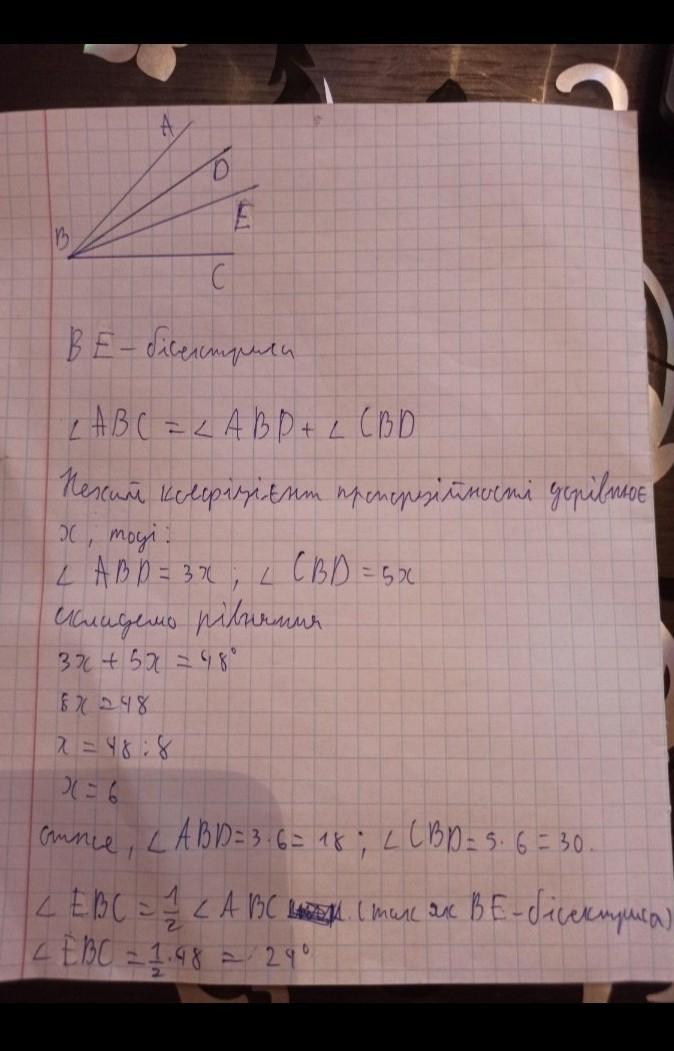 A
D
E
B
C
BE - бісектриса
∠ABC = ∠ABD + ∠CBD
Нехай коефіцієнт пропорційності дорівнює
x, тоді:
∠ ABD = 3x ; ∠ CBD = 5x
складемо рівняння
3x + 5x = 48°
8x = 48
x = 48 : 8
x = 6
отже, ∠ABD = 3·6 = 18 ; ∠CBD = 5·6 = 30.
∠EBC = 1/2 ∠ABC (так як BE - бісектриса)
∠EBC = 1/2·48 = 24°